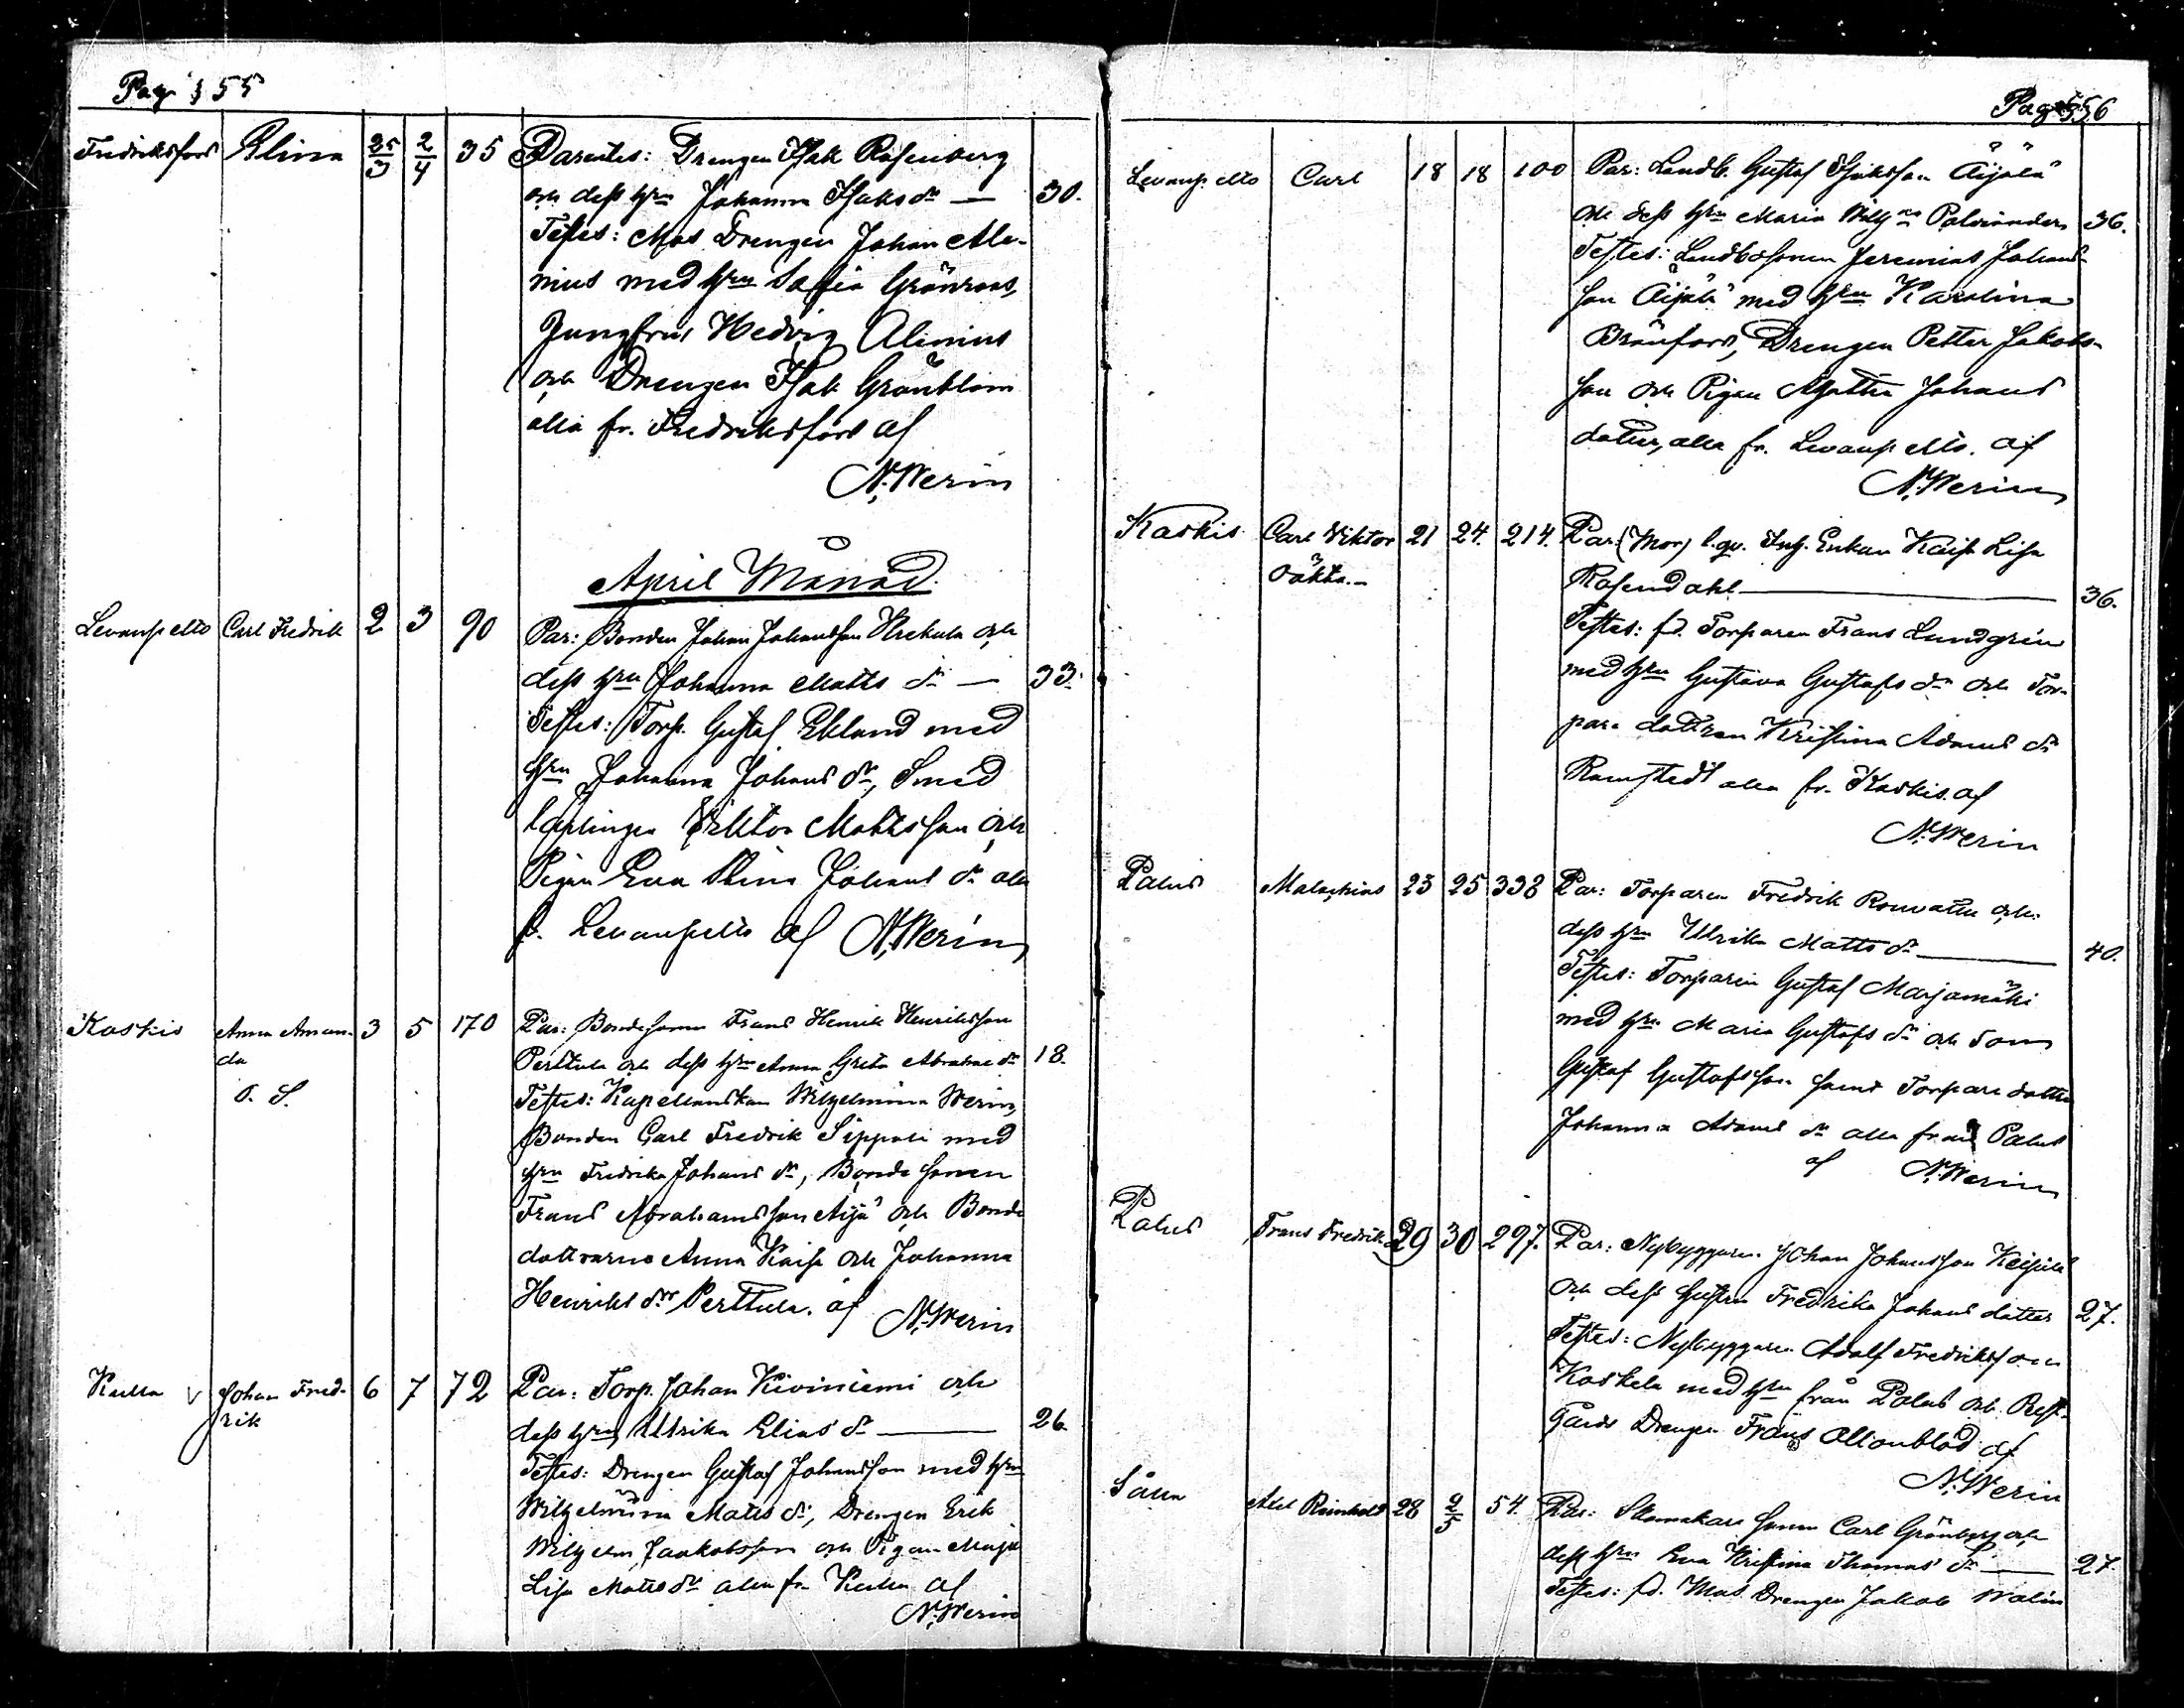 Pag 555
Fredriksfors Alina 25/3 2/4 35 Parentes: Drengen Isak Rosenberg
och dess Hru Johanna Isaks dr — 30.
Testes: Mas Drengen Johan Ale-
nius med Hru Sofia Grönroos,
Jungfrus Hedvig Alenius
och Drengen Isak Grönblom
alla fr. Fredriksfors af
N. Werin
April Månad.
Levanpelto Carl Fredrik 2 3 90 Par: Bonden Johan Johansson Krekula och
dess Hru Johanna Matts dr — 33.
Testes: Torp. Gustaf Eklund med
Hru Johanna Johans dr, Smed
lärlingen Viktor Mattsson och
Pigan Eva Stina Johans dr alla
f. Levanpelto af N. Werin
Koskis Anna Aman- 3 5 170 Par: Bondesonen Frans Henrik Henriksson
da
Perttula och dess Hru Anna Greta Abrahams dr 18.
O. S. Testes: Kapellanskan Wilhelmina Werin,
Bonden Carl Fredrik Sippola med
Hru Fredrika Johans dr, Bonde sonen
Frans Abrahamsson Äijä och Bonde
dottrarne Anna Kaisa och Johanna
Henriks drr Perttula. af N. Werin
Kulla v Johan Fred- 6 7 72 Par: Torp. Johan Kiviniemi och
rik
dess Hru Ulrika Elias dr — 26.
Testes: Drengen Gustaf Johansson med Hru
Wilhelmina Matts dr, Drengen Erik
Wilhelm Jaakobsson och Pigan Maja
Lisa Matts dr alla fr. Kulla af
N. Werin
Pag 556
Levanpelto Carl 18 18 100 Par: Landb. Gustaf Isaksson Äijälä
och dess Hru Maria Palviander 36.
Testes: Landbosonen Jeremias Johans-
son Äijälä med Hru Karolina
Brönfors, Drengen Petter Jakobs-
son och Pigan Agatha Johans
dotter, alla fr. Levanpelto. af
N. Werin
Koskis Carl Viktor 21 24. 214. Par: (Mor) l.qv. Inh. Enkan Kaisa Lisa
oäkta.-
Rosendahl — 36.
Testes: fd. Torparen Frans Lundgrén
med Hru Gustava Gustafs dr och Tor-
pare dottren Kristina Adams dr
Ramstedt alla fr. Koskis. af
N. Werin
Palus Malachias 23 25 338 Par: Torparen Fredrik Rouvali och
dess Hru Ulrika Matts dr — 40.
Testes: Torparen Gustaf Marjamäki
med Hru Maria Gustafs dr och Son
Gustaf Gustafsson samt Torpare dotter
Johanna Adams dr alla från Palus
af N. Werin
Palus Frans Fredrik 29 30 297. Par: Nybyggaren Johan Johansson Keisala
och dess Hustru Fredrika Johans dotter 27.
Testes: Nybyggaren Adolf Fredriksson
Koskela med Hru från Palus och Rest-
gårds Drengen Frans Allonblad af
N. Werin
Axel Reinhold 28 2/5 54. Par: Skomakare sonen Carl Grönberg och
dess Hru Eva Kristina Thomas dr — 27.
Testes: fd. Mas Drengen Jakob Walin